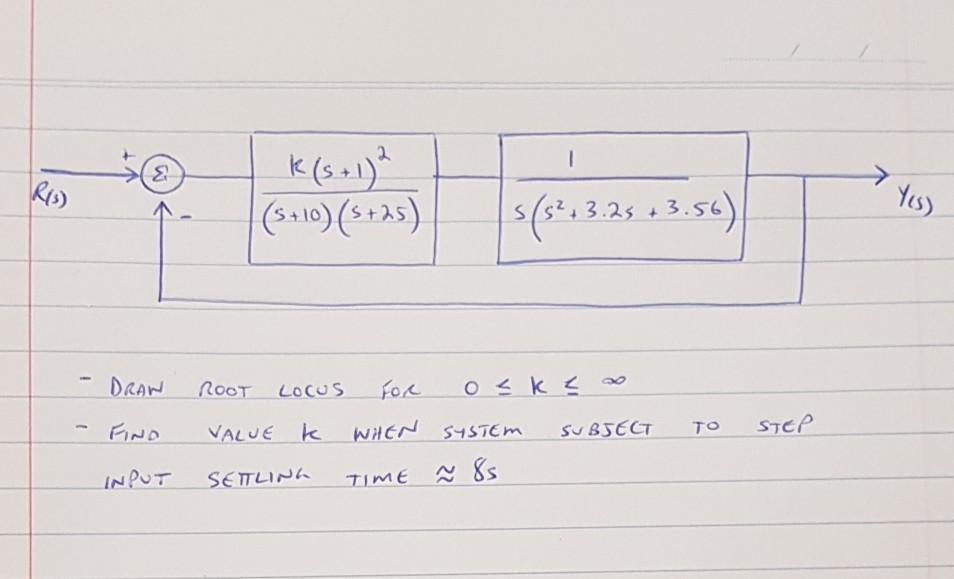 / /
+ k(s+1)² 1
R(s) Σ (s+10)(s+25) s(s²+3.2s+3.56) Y(s)
-
- DRAW ROOT LOCUS FOR 0 ≤ k ≤ ∞
- FIND VALUE k WHEN SYSTEM SUBJECT TO STEP
INPUT SETTLING TIME ≈ 8s